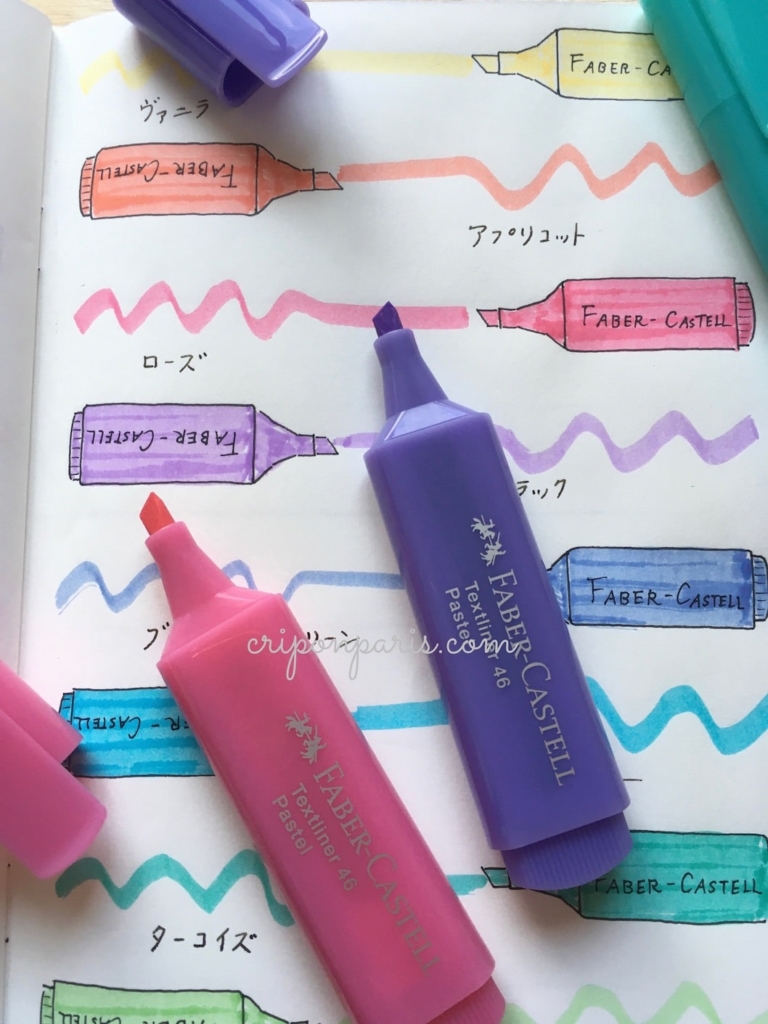 FABER-CA
ヴァニラ
FABER-CASTELL
アプリコット
FABER-CASTELL
ローズ
FABER-CASTELL
ラック
FABER-CASTELL
ブ
リーン
criponparis.com
FABER-CASTELL
Textliner 46
Pastel
CASTELL
FABER-CASTELL
Textliner 46
Pastel
FABER-CASTELL
ターコイズ